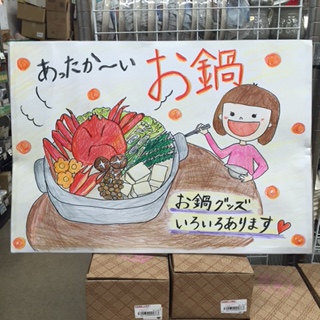 あったか〜い
お鍋
お鍋グッズ
いろいろあります